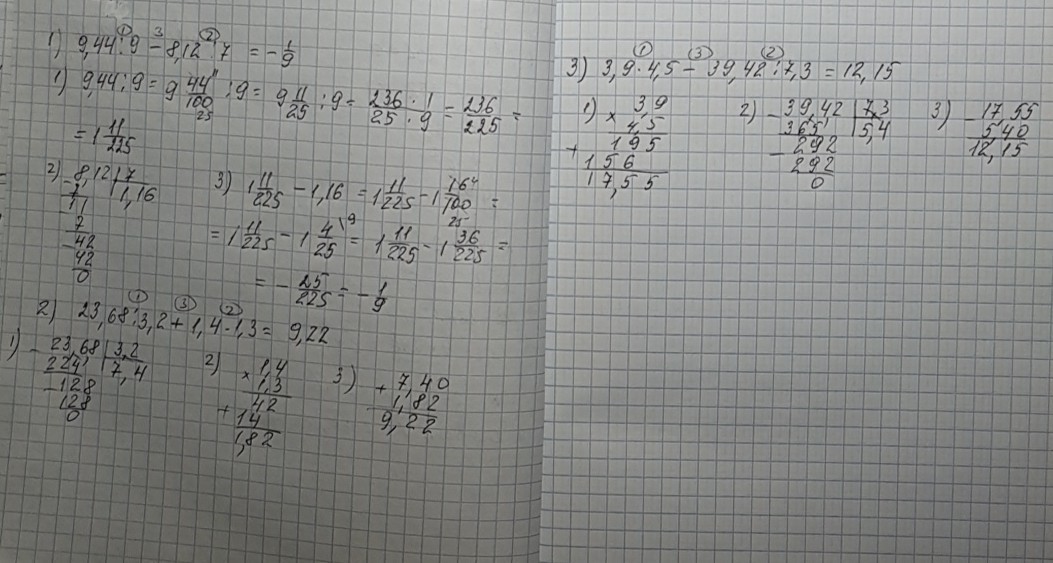 1) 9,44 : 9 - 8,12 : 7 = - 1/9
① ③ ②
1) 9,44 : 9 = 9 44/100 : 9 = 9 11/25 : 9 = 236 · 1 / 25 · 9 = 236/225 =
11
25
= 1 11/225
2) 8,12 | 7
7 | 1,16
11
7
42
42
0
3) 1 11/225 - 1,16 = 1 11/225 - 1 16/100 =
4
25
= 1 11/225 - 1 4/25 \9 = 1 11/225 - 1 36/225 =
= - 25/225 = - 1/9
① ③ ②
2) 23,68 : 3,2 + 1,4 · 1,3 = 9,22
1) - 23,68 | 3,2
224 | 7,4
- 128
128
0
2) × 1,4
1,3
+ 42
14
1,82
3) + 7,40
1,82
9,22
① ③ ②
3) 3,9 · 4,5 - 39,42 : 7,3 = 12,15
1) × 3,9
4,5
+ 195
156
17,55
2) - 39,42 | 7,3
365 | 5,4
- 292
292
0
3) - 17,55
5,40
12,15